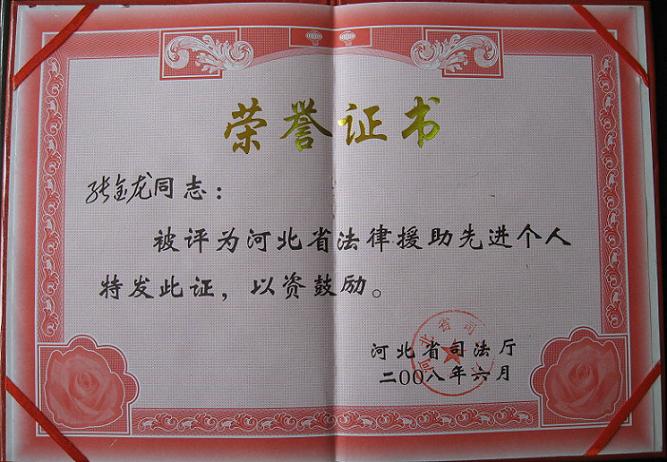 荣誉证书
张金龙同志：
被评为河北省法律援助先进个人
特发此证，以资鼓励。
河北省司法厅
二00八年六月